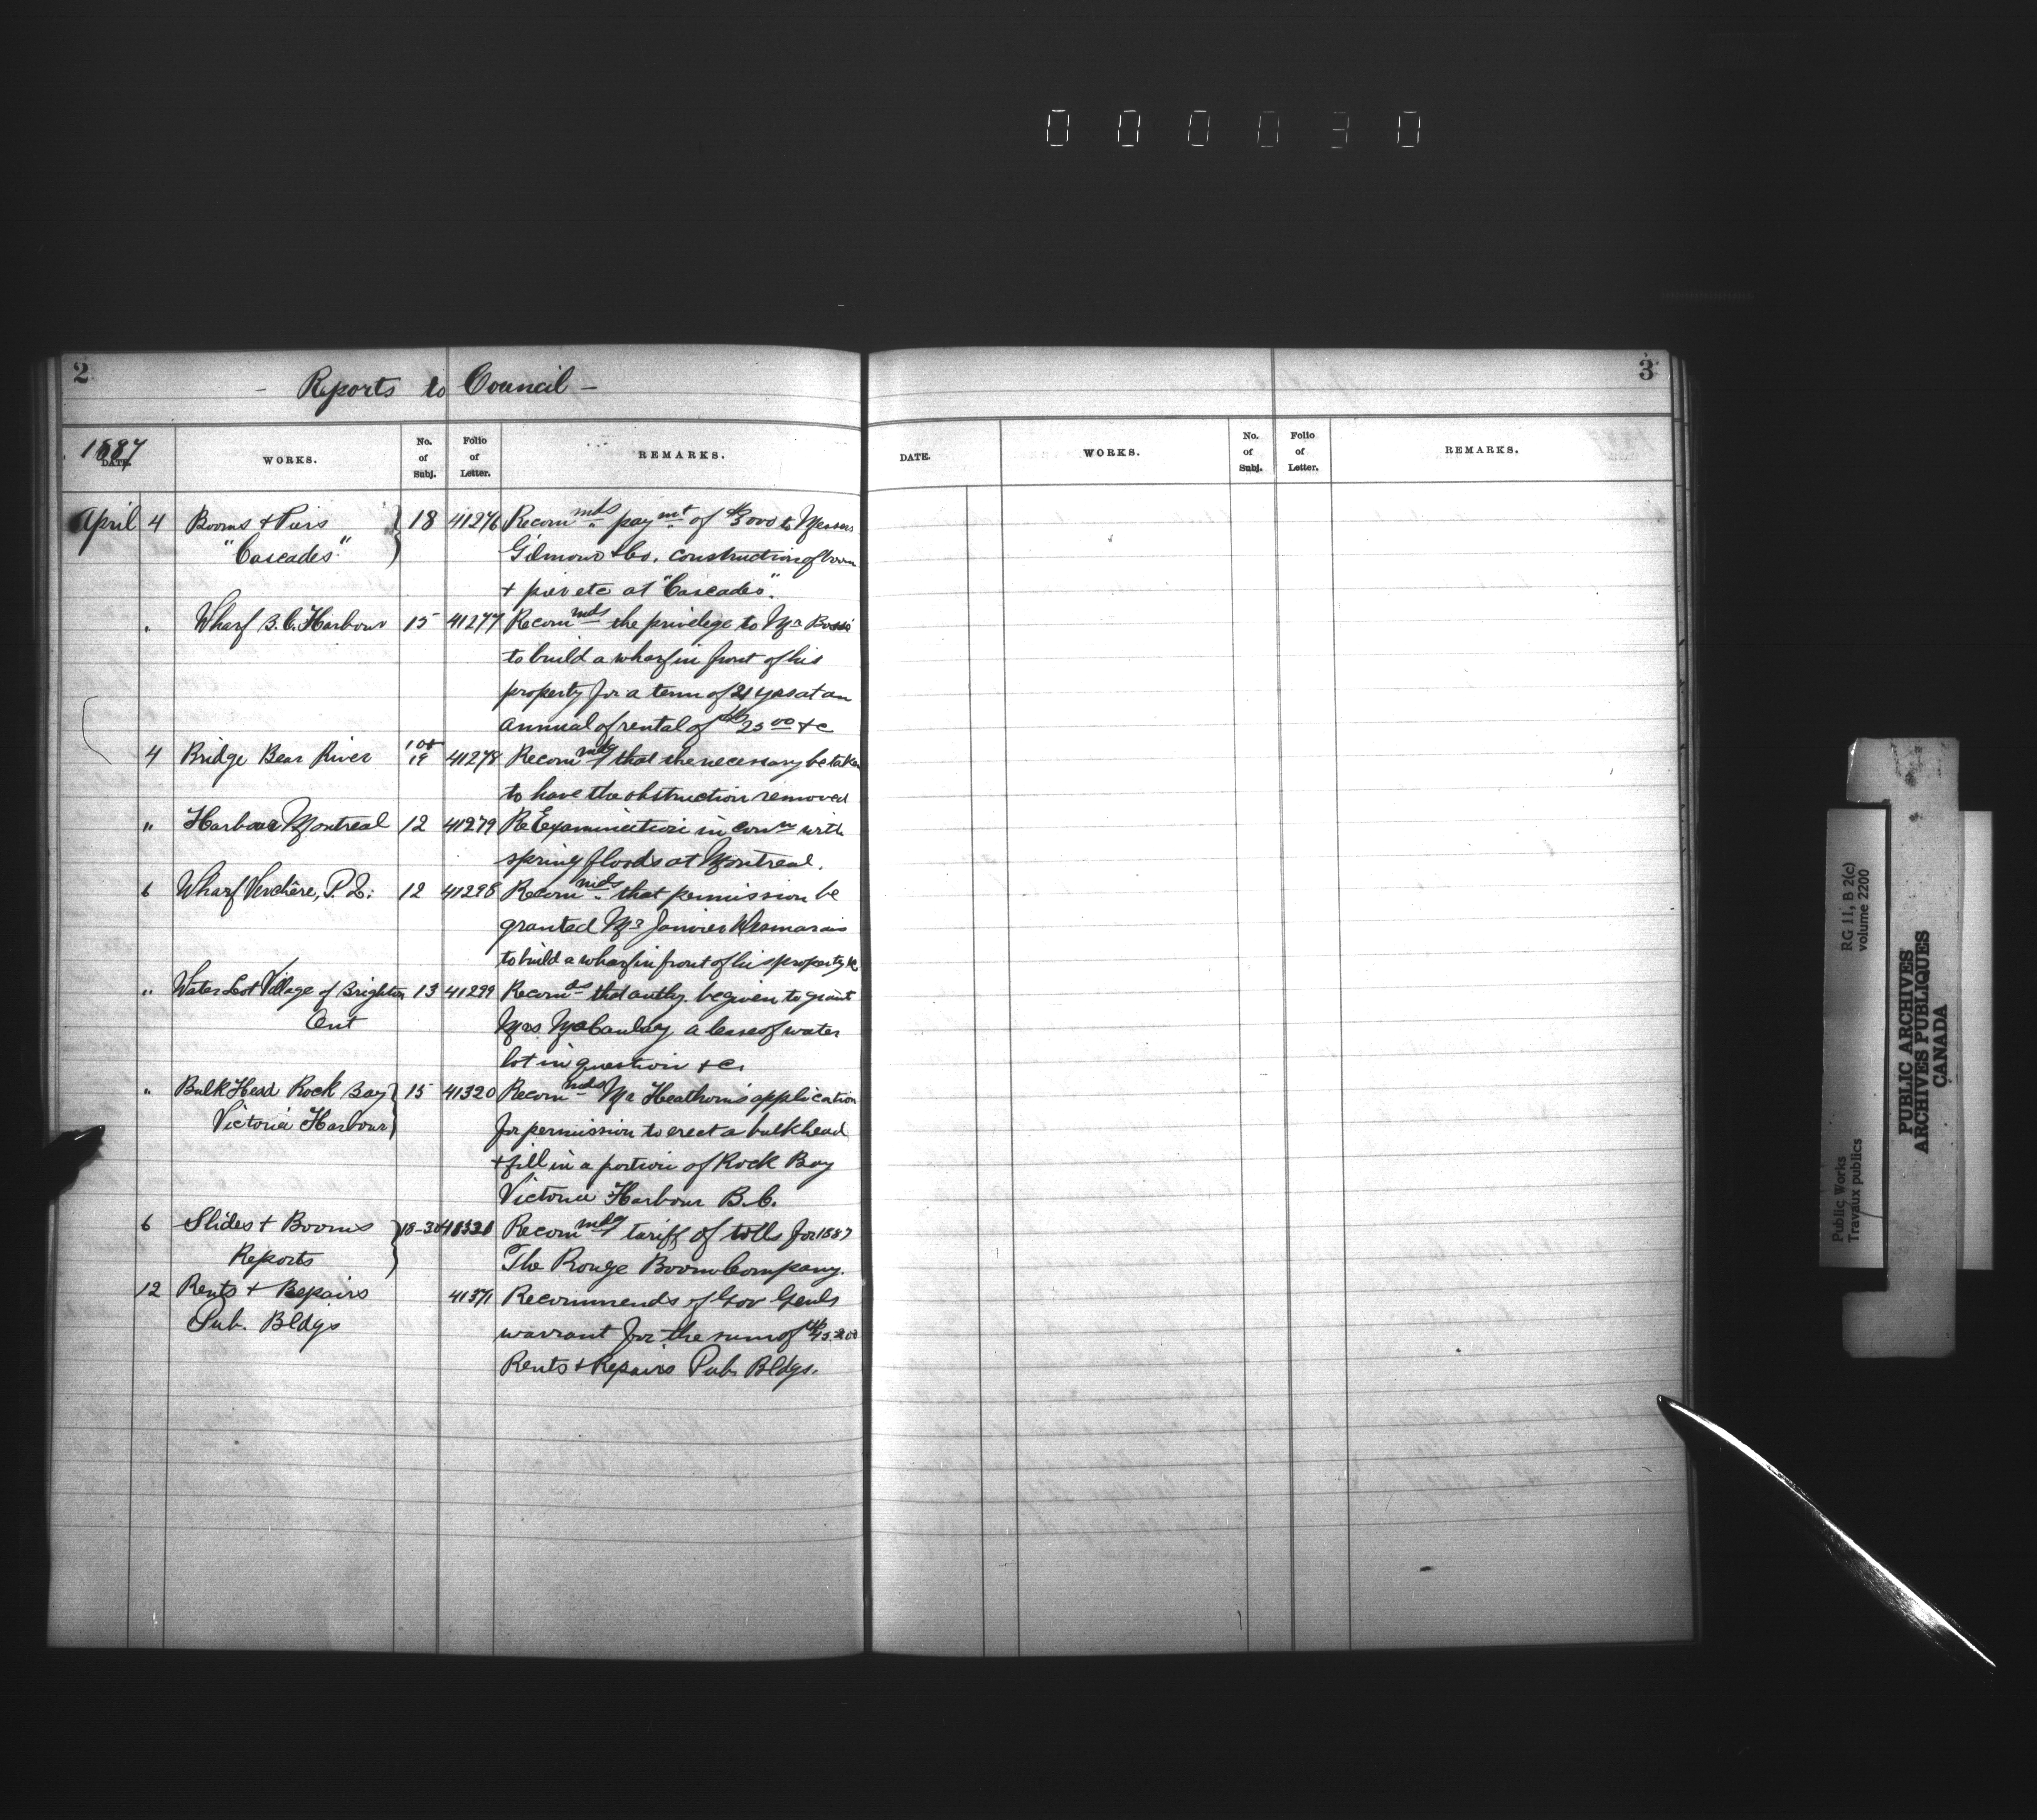 000030
2
- Reports to Council -
1887
DATE. WORKS. No. of Subj. Folio of Letter. REMARKS.
April 4 Booms + Piers } 18 41276 Recommds paymt of $3000 to Messrs
"Cascades" Gilmour & Co. construction of boom
+ pier etc at "Cascades".
" Wharf B.C. Harbour 15 41277 Recommds the privilege to Mr
to build a wharf in front of his
property for a term of 21 yrs at an
annual of rental of $25 00 +c
4 Bridge Bear River 19 41278 Recommdg that the necessary be taken
to have the obstruction removed
" Harbour Montreal 12 41279 Re Examination in conn with
spring floods at Montreal.
6 Wharf Verchère, P.Q: 12 41298 Recommds that permission be
granted Mr Janvier Desmarais
to build a wharf in front of his property &c
" Water Lot Village of Brighton 13 41299 Recomds that authy. be given to grant
Ont Mrs McCaulay a lease of water
lot in question +c.
" Bulk Head Rock Bay } 15 41320 Recommds Mr Heathorn's application
Victoria Harbour for permission to erect a bulkhead
+ fill in a portion of Rock Bay
Victoria Harbour B.C.
6 Slides + Booms } 18-30 41321 Recommdg tariff of tolls for 1887
Reports The Rouge Boom Company.
12 Rents + Repairs 41371 Recommends of Gov Genls
Pub. Bldgs warrant for the sum of
Rents + Repairs Pub. Bldgs.
3
DATE. WORKS. No. of Subj. Folio of Letter. REMARKS.
Public Works
Travaux publics
RG 11, B 2(c)
volume 2200
PUBLIC ARCHIVES
ARCHIVES PUBLIQUES
CANADA